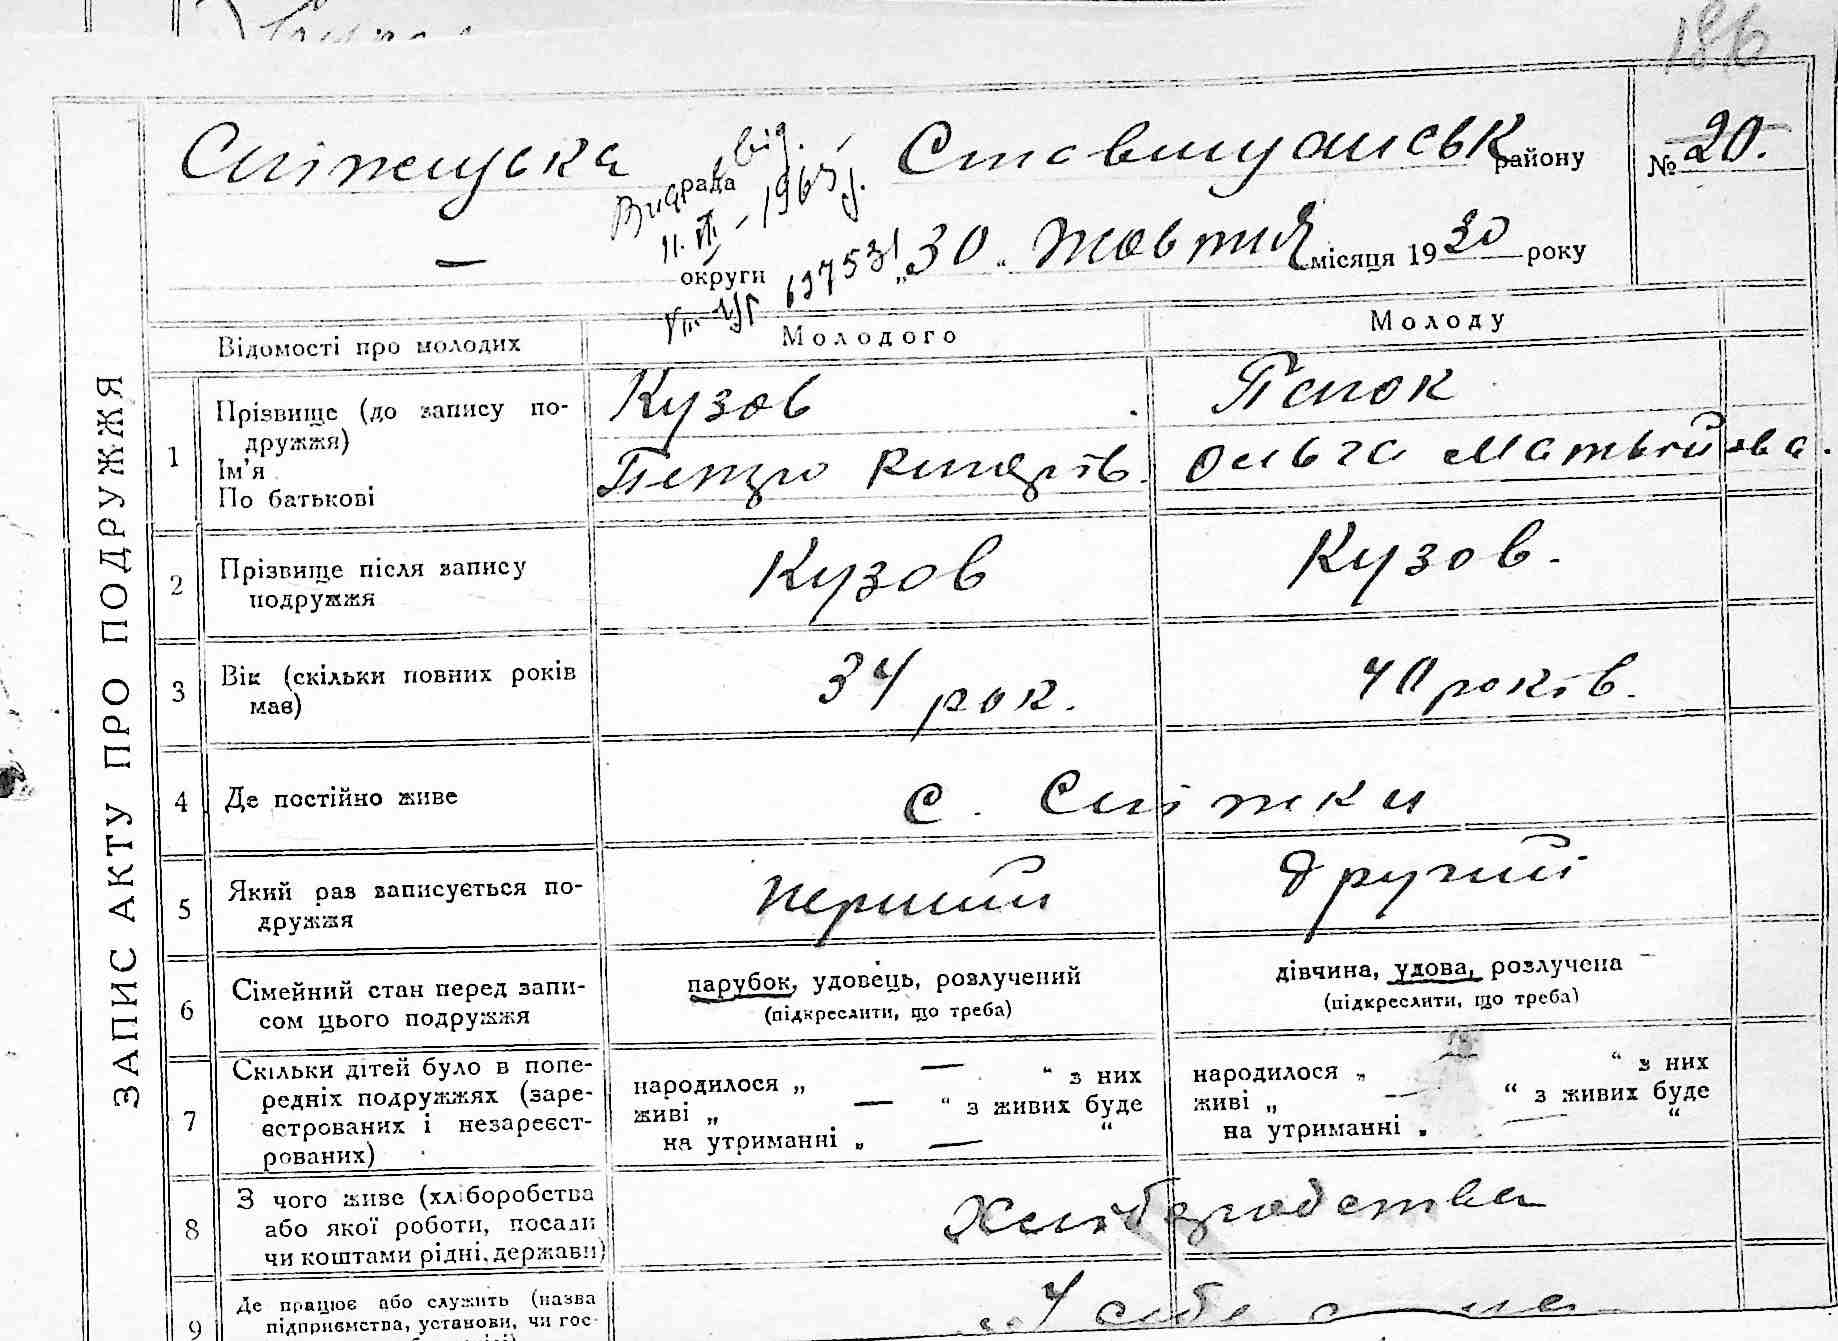 186
Сніжецька рада Ставищанськ району № 20.
від.
– округи „30“ Жовтня місяця 1930 року
697531
Відомості про молодих Молодого Молоду
ЗАПИС АКТУ ПРО ПОДРУЖЖЯ
1 Прізвище (до запису по- Кузов Пепок
дружжя)
Ім’я Петро Ольга Матвійова.
По батькові
2 Прізвище після запису Кузов Кузов.
подружжя
3 Вік (скільки повних років 34 рок. 40 років.
має)
4 Де постійно живе с. Сніжки
5 Який раз записується по- перший другий
дружжя
6 Сімейний стан перед запи- парубок, удовець, розлучений дівчина, удова, розлучена
сом цього подружжя (підкреслити, що треба) (підкреслити, що треба)
7 Скільки дітей було в попе- народилося „ — “ з них народилося „ “ з них
редніх подружжях (заре- живі „ — “ з живих буде живі „ — “ з живих буде
єстрованих і незареєст- на утриманні „ — “ на утриманні „ — “
рованих)
8 З чого живе (хліборобства Хліборобства
або якої роботи, посади
чи коштами рідні, держави)
9 Де працює або служить (назва У себе
підприємства, установи, чи гос-